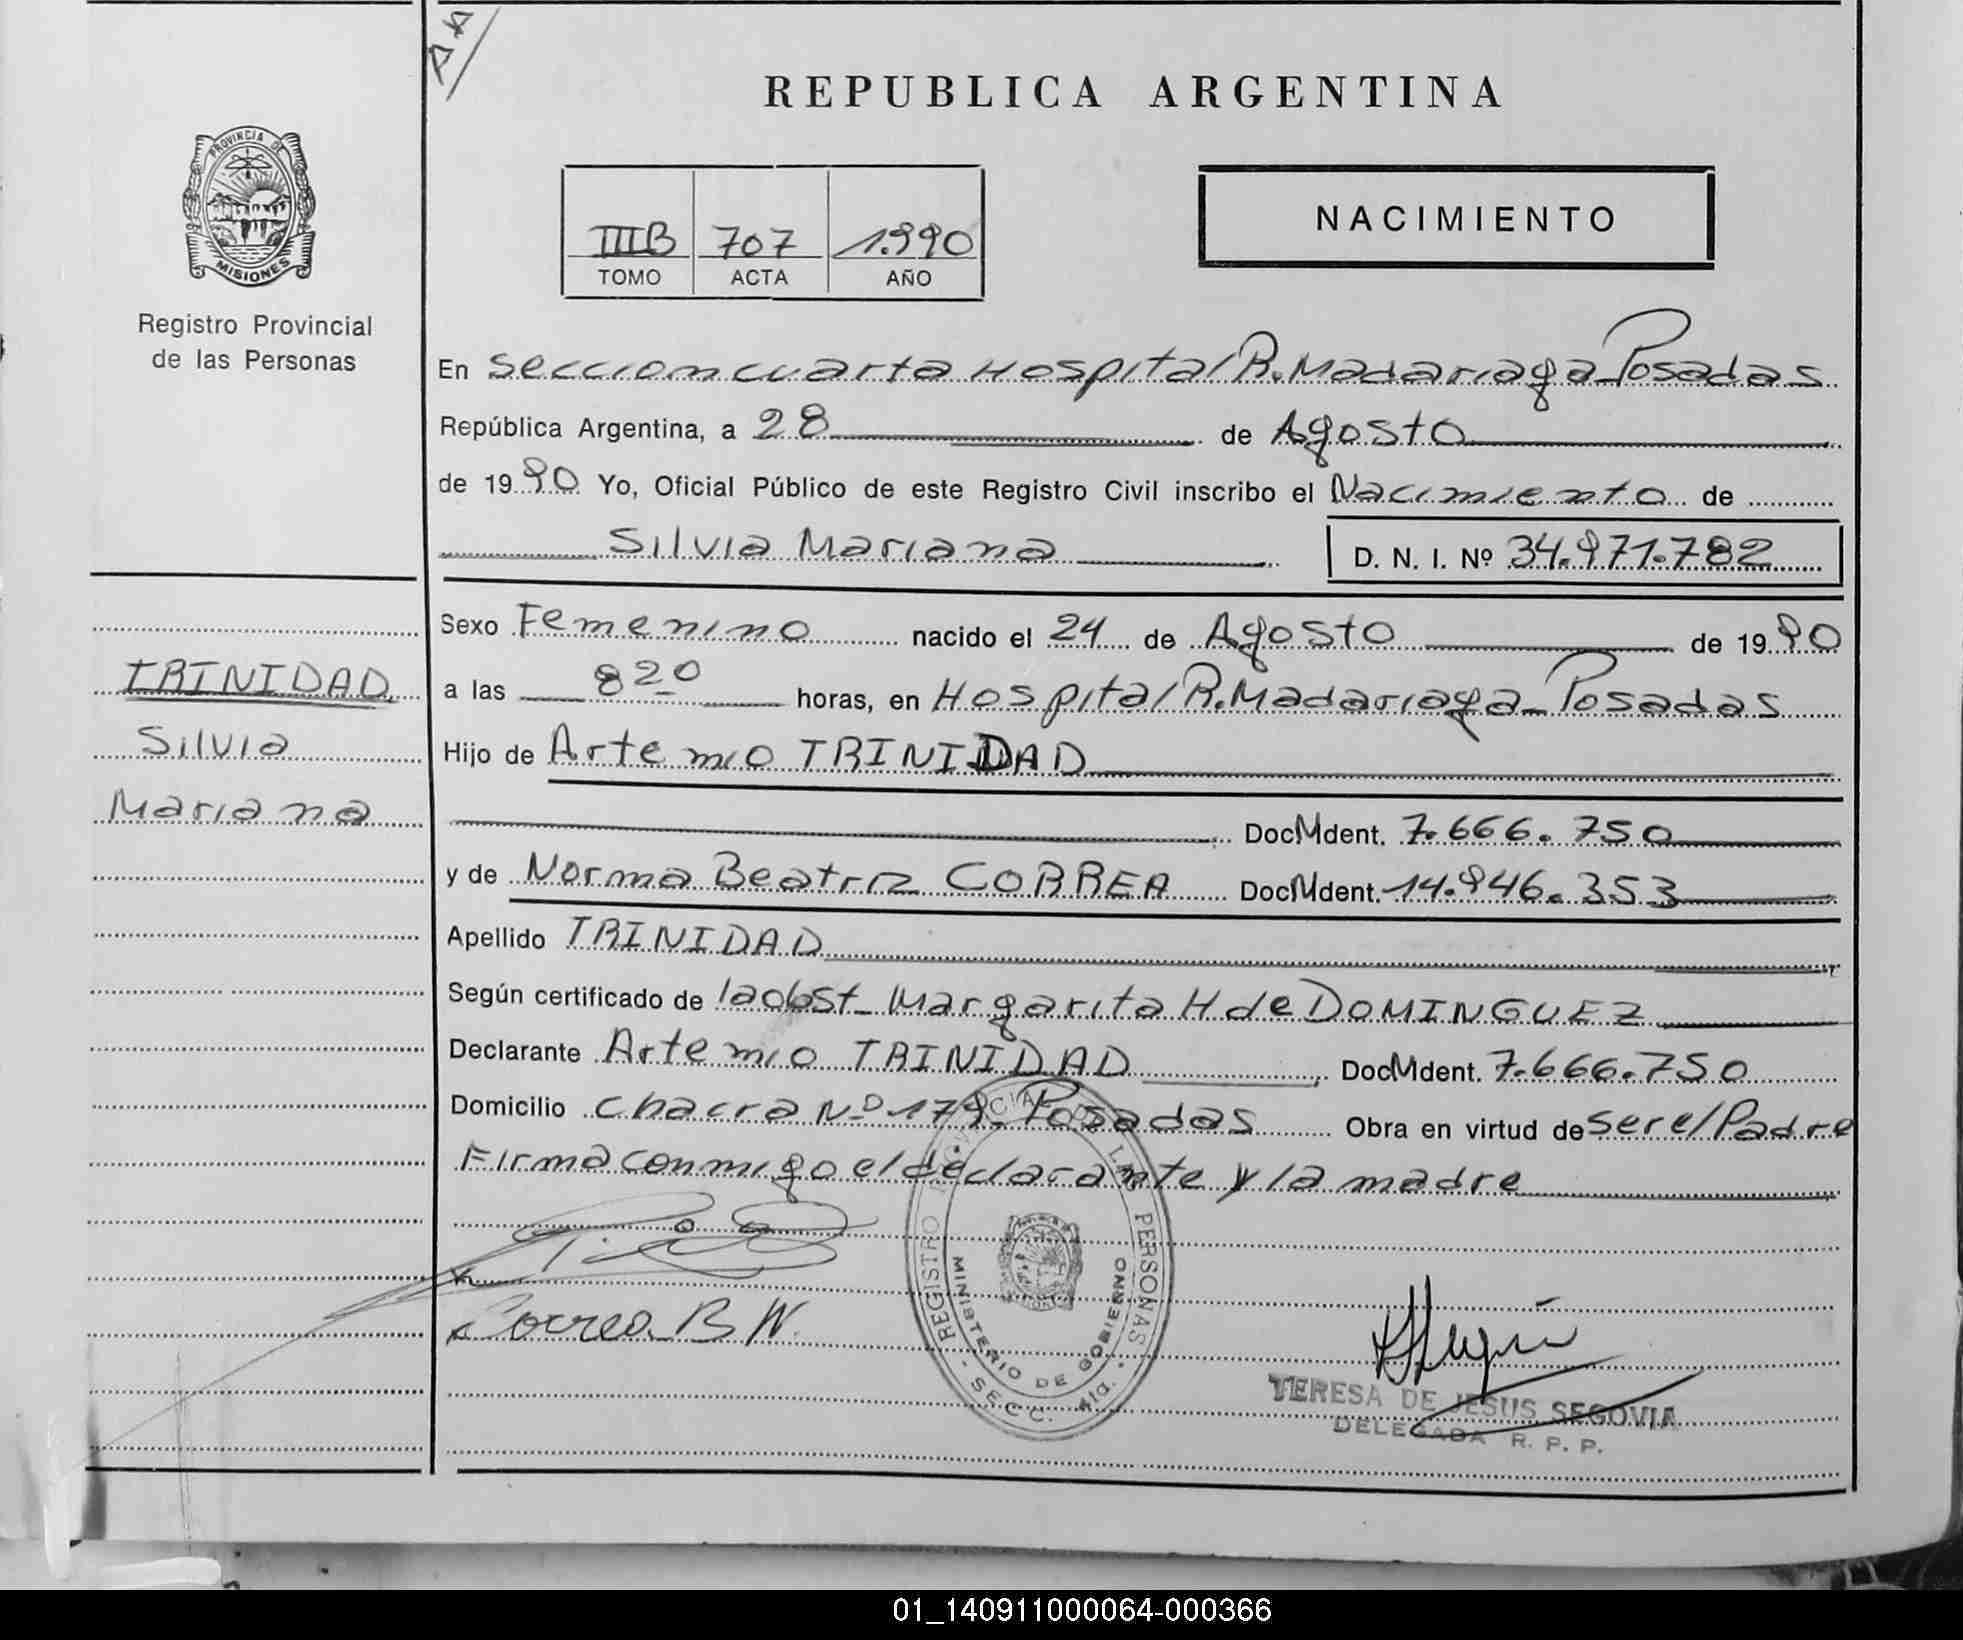 REPUBLICA ARGENTINA
PROVINCIA DE
MISIONES
Registro Provincial
de las Personas
IIIB 707 1.990
TOMO ACTA AÑO
NACIMIENTO
En Seccion cuarta Hospital R. Madariaga - Posadas
República Argentina, a 28 de Agosto
de 1990 Yo, Oficial Público de este Registro Civil inscribo el Nacimiento de
Silvia Mariana
D. N. I. Nº 34.971.782
TRINIDAD
Silvia
Mariana
Sexo Femenino nacido el 24 de Agosto de 1990
a las 8 20 horas, en Hospital R. Madariaga - Posadas
Hijo de Artemio TRINIDAD
Doc M Ident. 7.666.750
y de Norma Beatriz CORREA Doc M Ident. 14.946.353
Apellido TRINIDAD
Según certificado de la obst - Margarita H de DOMINGUEZ
Declarante Artemio TRINIDAD Doc M Ident. 7.666.750
Domicilio chacra Nº 179 - Posadas Obra en virtud de ser el Padre
Firma conmigo el declarante y la madre
Correa B N.
REGISTRO PROVINCIAL DE LAS PERSONAS
MINISTERIO DE GOBIERNO
- SECC. 4ta. -
TERESA DE JESUS SEGOVIA
DELEGADA R. P. P.
01_140911000064-000366